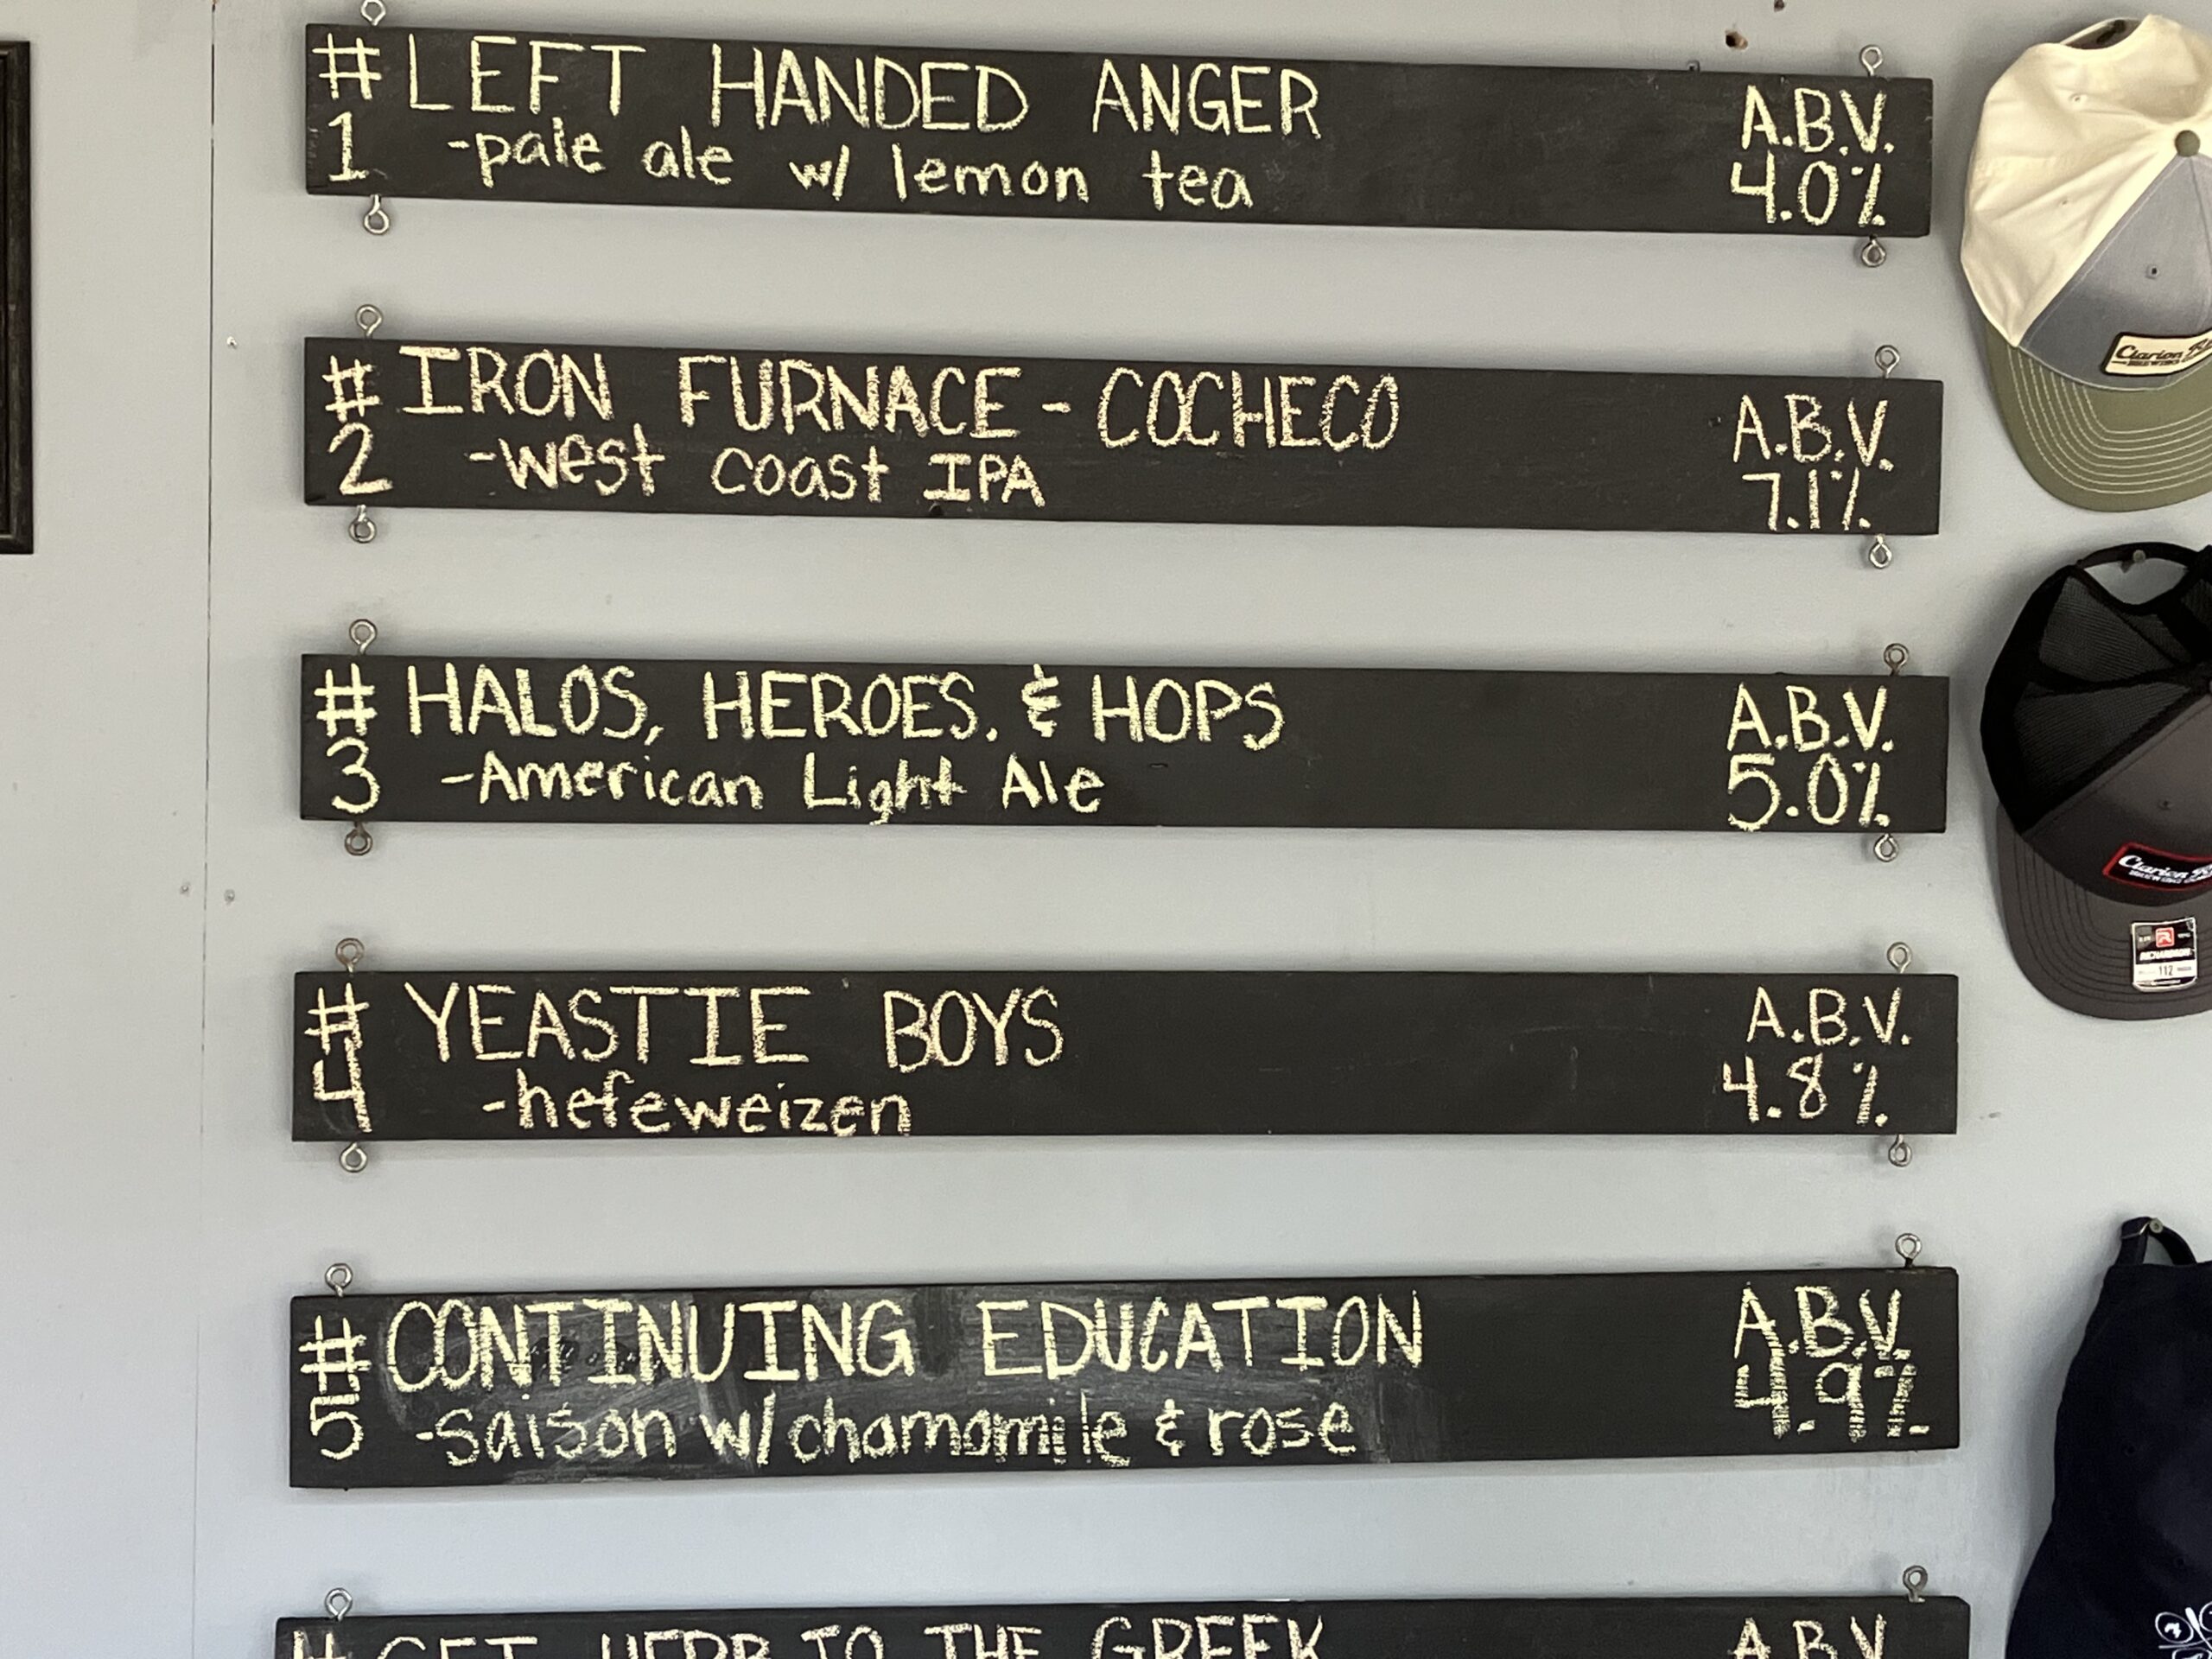 # LEFT HANDED ANGER
1 -pale ale w/ lemon tea
A.B.V.
4.0%
# IRON FURNACE - COCHECO
2 -west coast IPA
A.B.V.
7.1%
# HALOS, HEROES. & HOPS
3 -American Light Ale
A.B.V.
5.0%
# YEASTIE BOYS
4 -hefeweizen
A.B.V.
4.8%
# CONTINUING EDUCATION
5 -saison w/ chamomile & rose
A.B.V.
4.9%
# GET HERB TO THE GREEK
A.B.V.
Clarion
Clarion
112